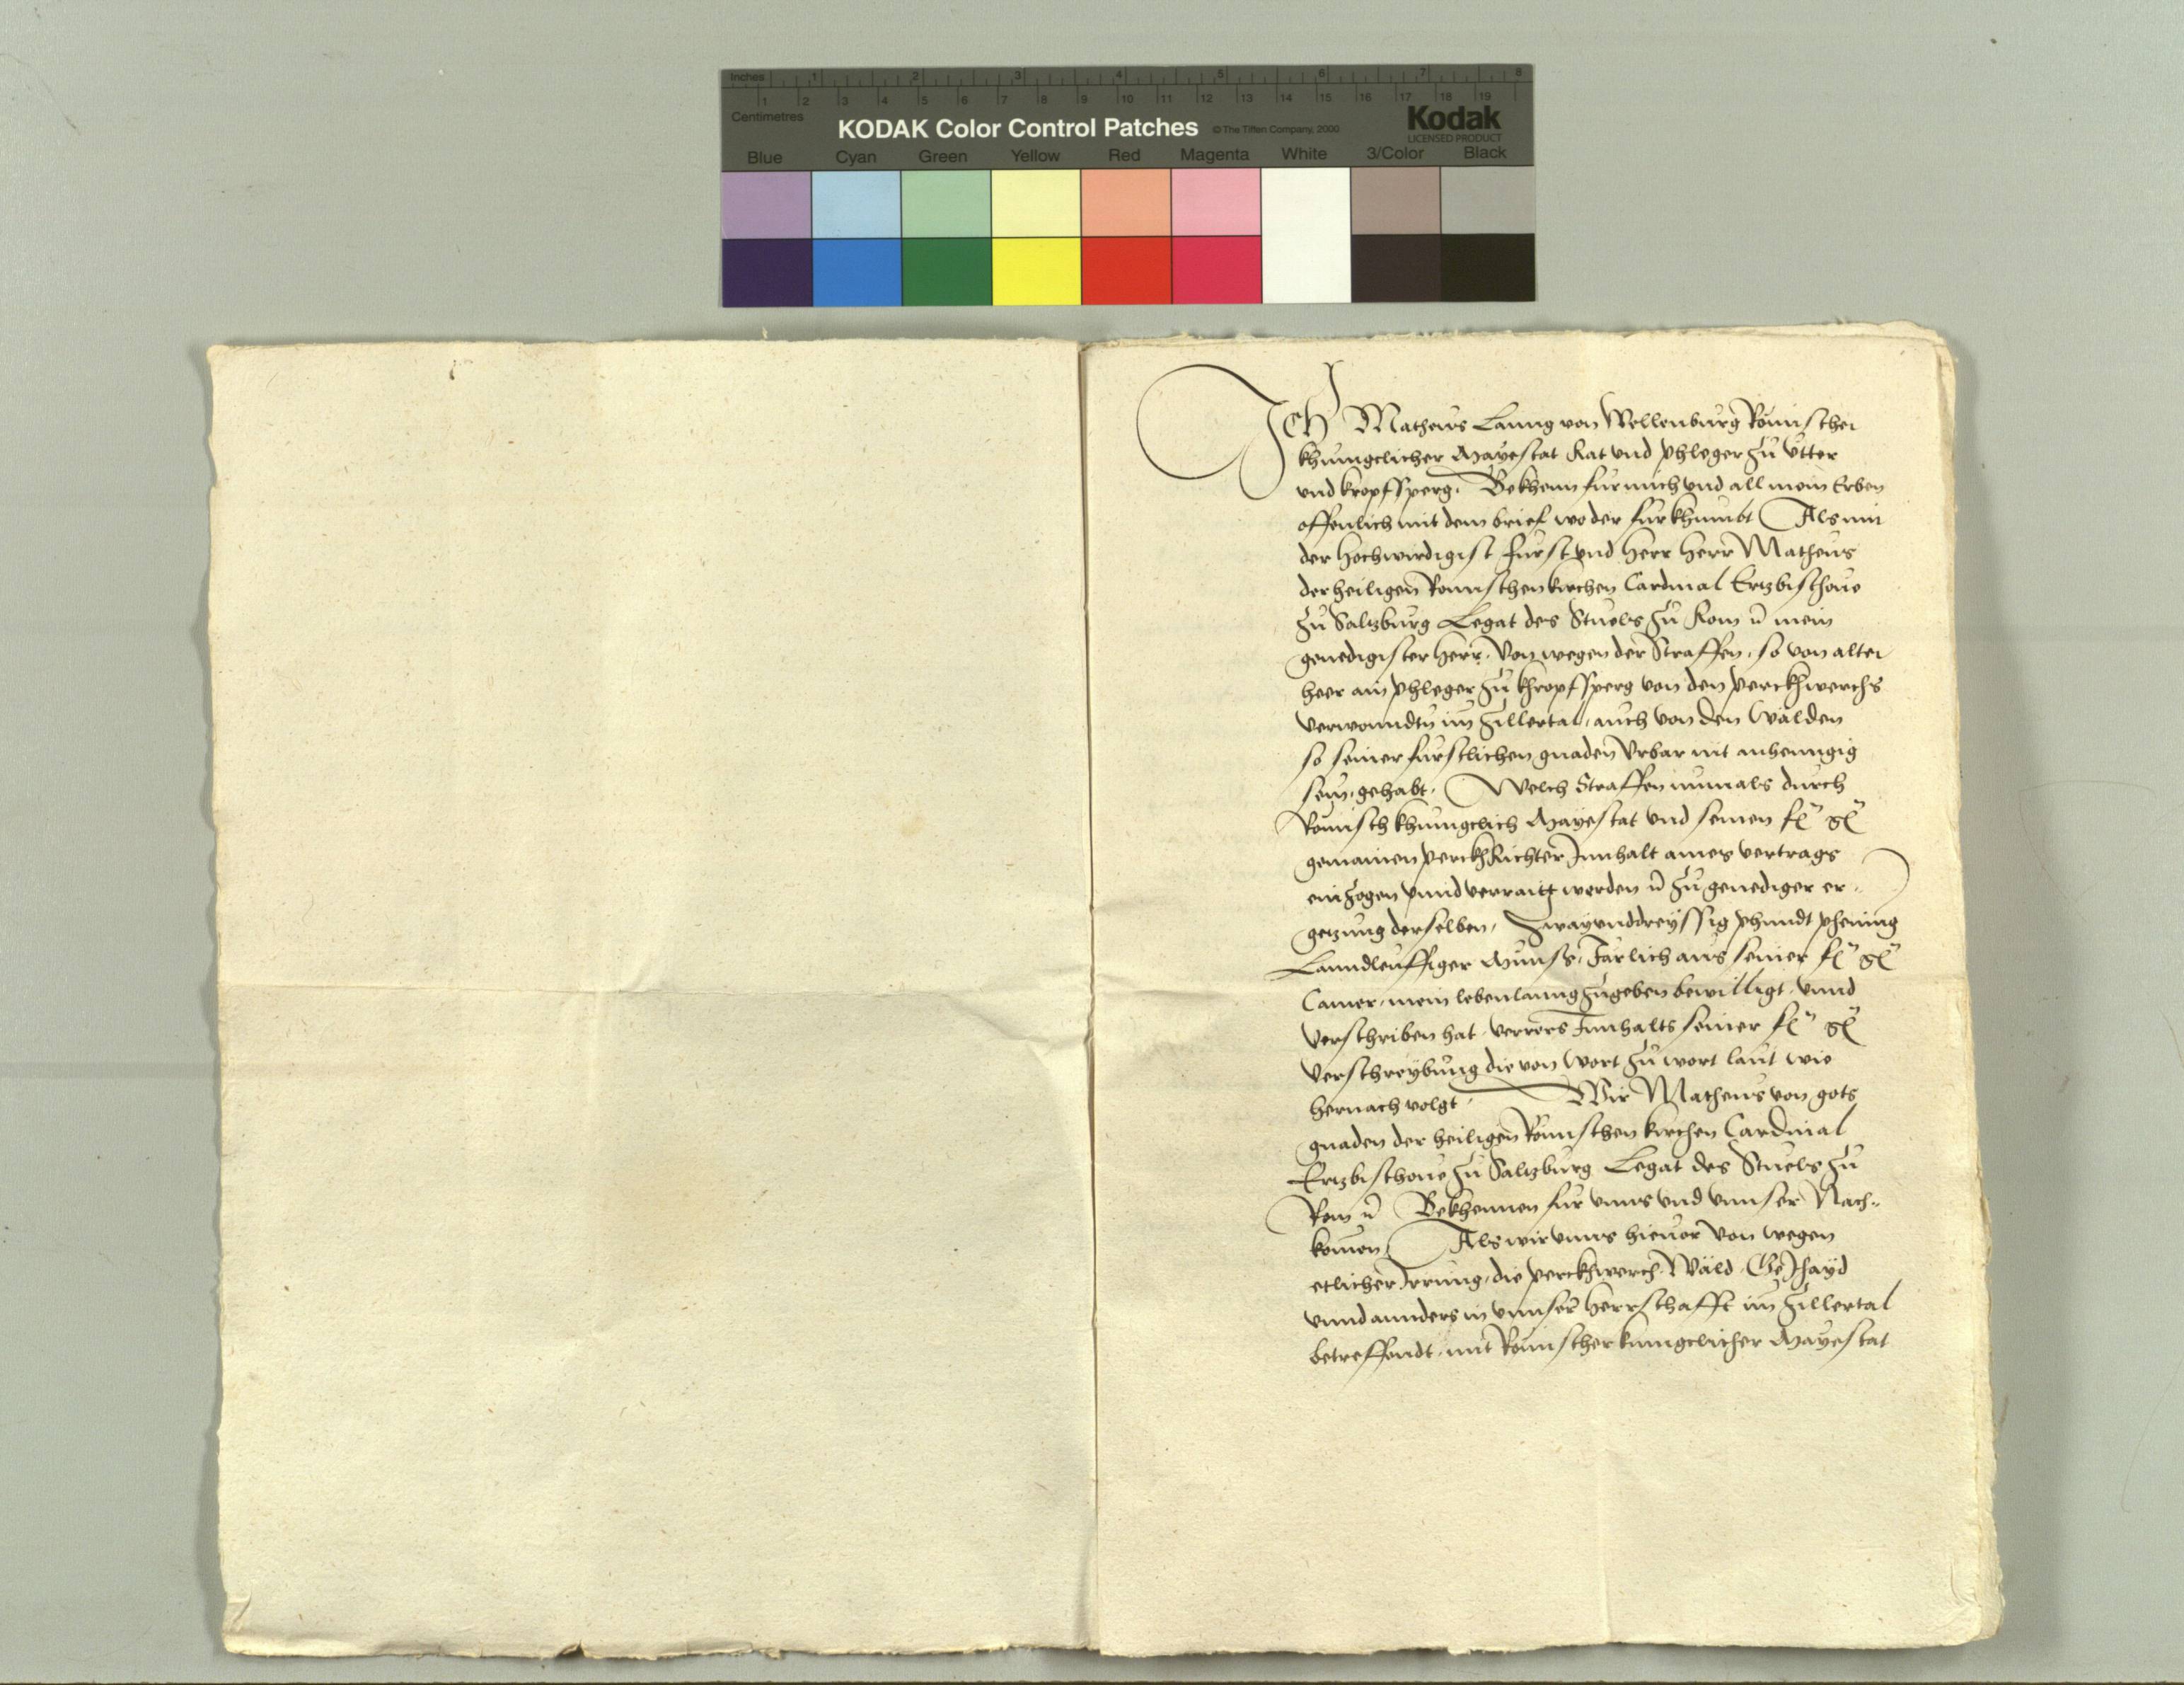 Inches 1 2 3 4 5 6 7 8
1 2 3 4 5 6 7 8 9 10 11 12 13 14 15 16 17 18 19
Centimetres
KODAK Color Control Patches © The Tiffen Company, 2000 Kodak
LICENSED PRODUCT
Blue Cyan Green Yellow Red Magenta White 3/Color Black
Ich Matheus Lanng von Wellenburg Römischer
khunigclicher Mayestat Rat vnd phleger zu Ytter
vnd kropfsperg. Bekhenn für mich vnd all mein Erben
offenlich mit dem brief wo der fürkhumbt Als mir
der hochwirdigist Fürst vnd herr herr Matheus
der heiligen Römischen kirchen Cardinal Ertzbischoue
zu Saltzburg Legat des Stuels zu Rom ꝛc mein
genedigister herr. Von wegen der Straffen, so von alter
heer ain phleger zu khropfsperg von den perckhwerchs
verwonndtn im Zillertal, auch von den Wälden
so seiner fürstlichen gnaden Vrbar nit anhenngig
sein, gehabt. Welch Straffen nunmals durch
Römisch khunigclich Mayestat vnd seinen fl gl
gemainen perckhRichter Innhalt aines vertrags
einzogen vnnd verraitt werden ꝛc zu genediger er-
getzung derselben, Zwayunddreyssig phundt phening
Lanndleuffiger Münss, Järlich aus seiner fl gl
Camer, mein lebenlanng zugeben bewilligt, vnnd
verschriben hat, verrers Innhalts seiner fl gl
verschreybung die von wort zu wort laut wie
hernach volgt. Wir Matheus von gots
gnaden der heiligen Römischen kirchen Cardinal
Ertzbischoue zu Saltzburg Legat des Stuels zu
Rom ꝛc Bekhennen für vnns vnd vnnser Nach-
komen, Als wir vnns hieuor von wegen
etlicher Irrung, die perckhwerch, Wäld, Gejhayd
vnnd annders in vnnser herrschafft im Zillertal
betreffendt, mit Römischer kunigclicher Mayestat